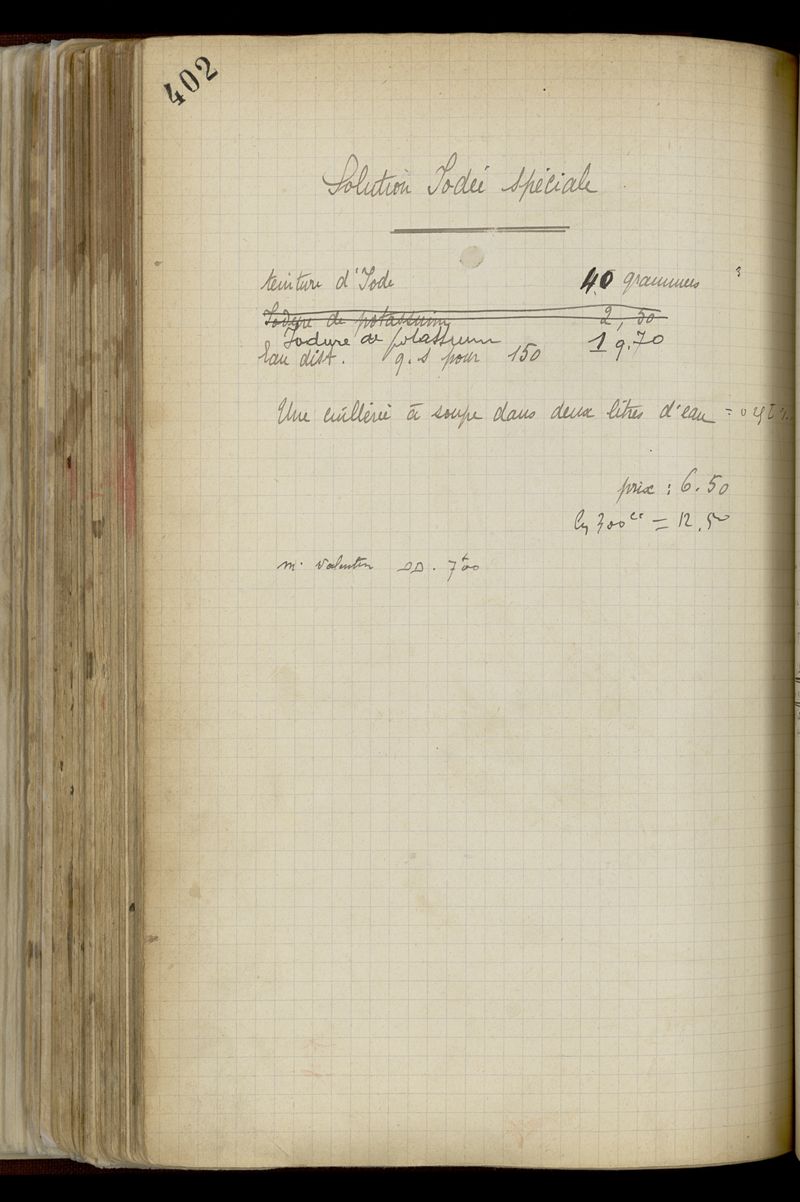 402
Solution Iodée spéciale
teinture d'Iode 40 grammes
Iodure de potassium 2,50
Iodure de potassium 1 g.70
Eau dist. q.s pour 150
Une cuillérée à soupe dans deux litres d'eau =
prix : 6.50
300cc = 12.50
m. Valentin